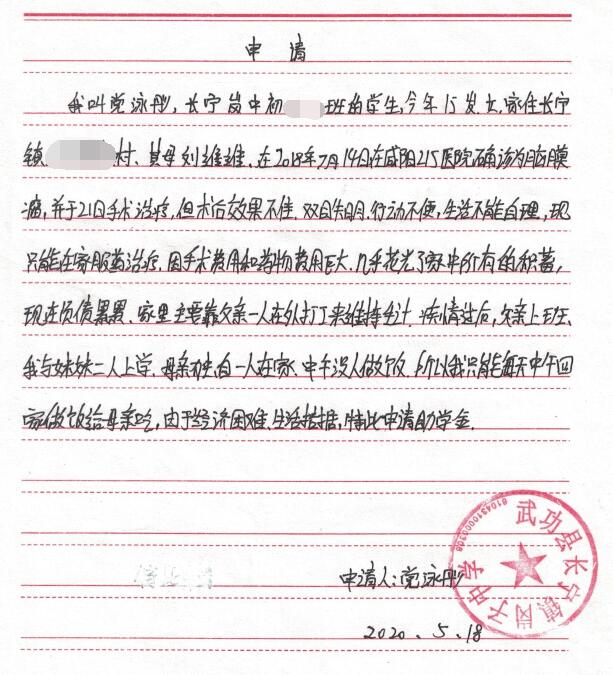 申请
我叫党泳彤，长宁岗中初 班的学生，今年15岁大，家住长宁
镇 村、其母刘维维、在2018年7月14日在咸阳215医院确诊为脑膜
瘤，并于21日手术治疗，但术后效果不佳，双目失明、行动不便，生活不能自理，现
只能在家服药治疗，因手术费用和药物费用巨大，几乎花光了家中所有的积蓄，
现在负债累累、家里主要靠父亲一人在外打工来维持生计、疫情过后，父亲上班、
我与妹妹二人上学、母亲独自一人在家、中午没人做饭、所以我只能每天中午回
家做饭给母亲吃，由于经济困难、生活拮据，特此申请助学金。
申请人：党泳彤
2020.5.18
武功县长宁镇岗子中学